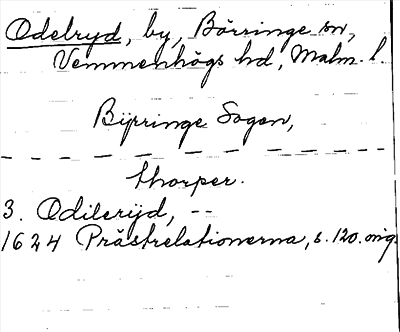 Odelryd, by, Börringe sn,
Vemmenhögs hd, Malm. l.
Bijrringe Sogen,
thorper.
3. Odilerijd, --
1624 Prästrelationerna, s. 120. orig.